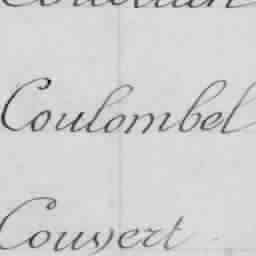 Coulombel
Couvert